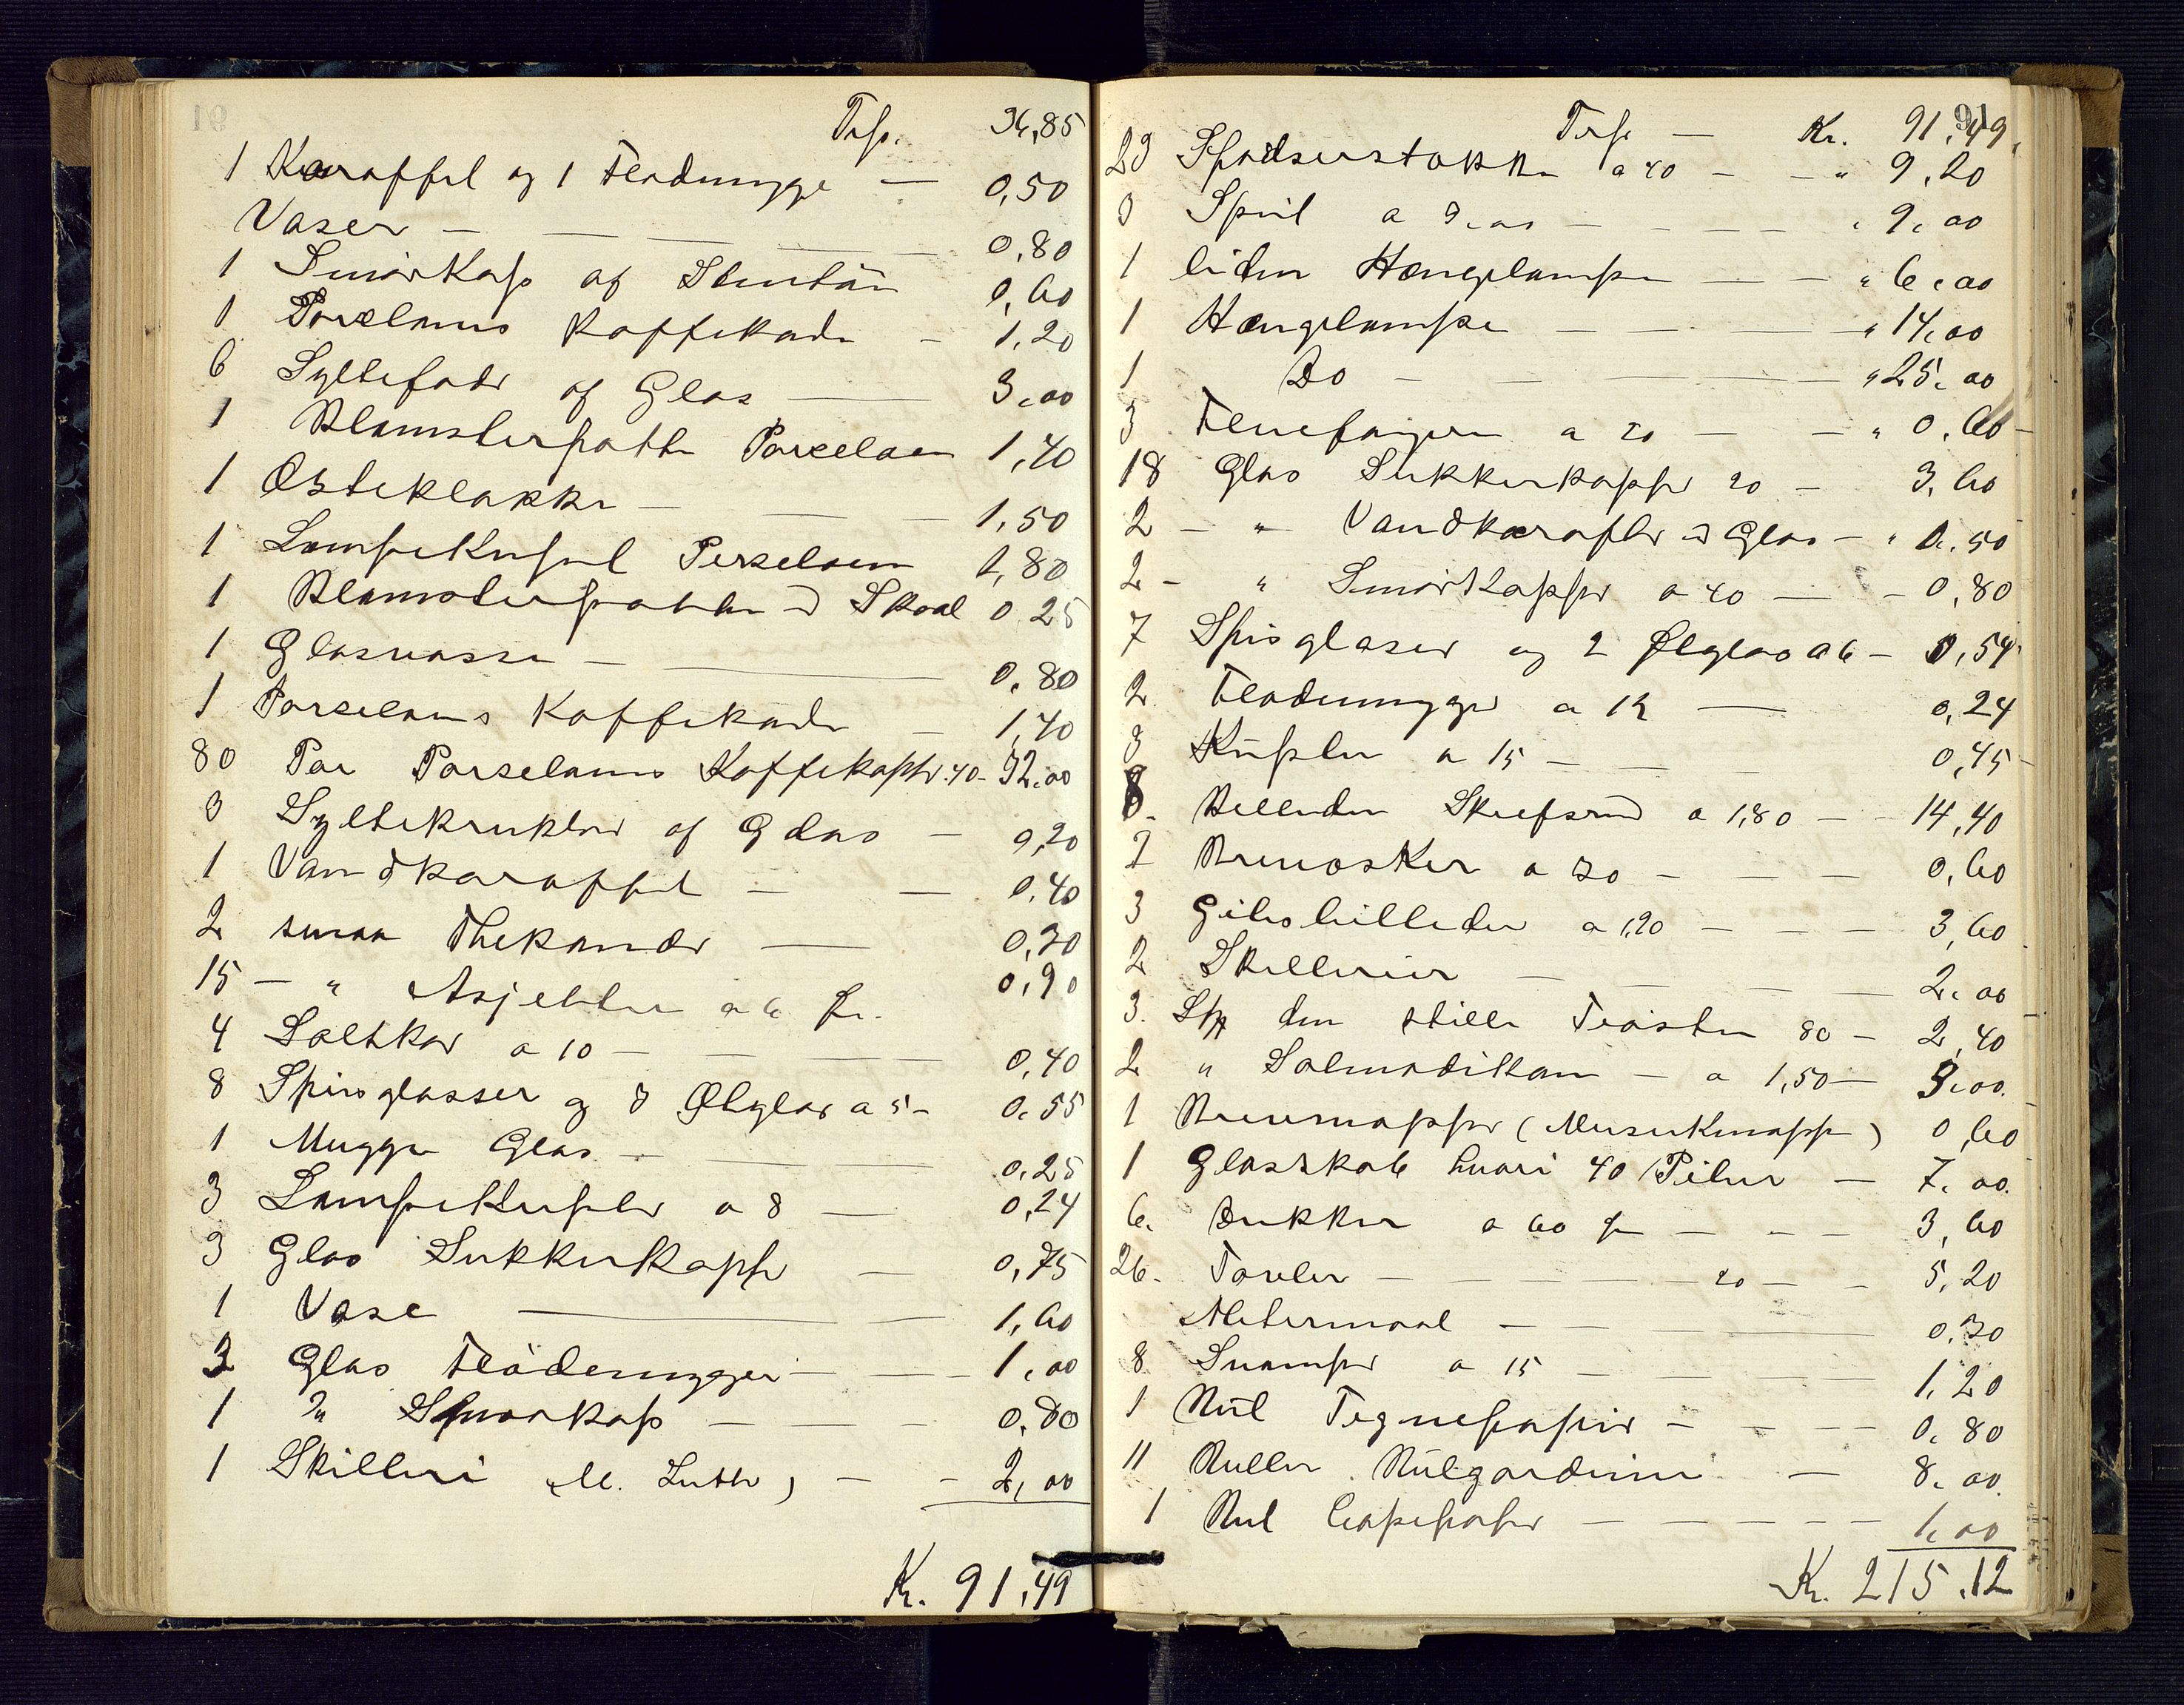 Trsp. 36,85
1 Karaffel og 1 Flødemugge — 0,50
Vaser — 0,80
1 Smörkop af Stentöi 0,60
1 Porcelæns Kaffekande — 1,20
6 Syltefade af Glas — 3,00
1 Blomsterpotte Porcelæn 1,40
1 Osteklokke — 1,50
1 Lampekupel Porselæn 1,80
1 Blomsterpotte Skaal 0,25
1 Glasvasse — 0,80
1 Porselæns Kaffekande — 1,40
80 Par Porselæns Kaffekopper 40 — 32,00
3 Syltekrukker af Glas — 0,20
1 Vandkaraffel — 0,40
2 smaa Thekander — 0,70
15 — " Asjetter a 6 Ør. 0,90
4 Saltkar a 10 — 0,40
8 Spirglasser og 3 Ølglas a 5 — 0,55
1 Mugge Glas — 0,25
3 Lampekupler a 8 — 0,24
3 Glas Sukkerkopper — 0,75
1 Vase — 1,60
2 Glas Flödemugger — 1,00
1 " Smørkop — 0,80
1 Skilleri (M. Luther) — 2,00
Kr. 91,49
91
Trsp — Kr. 91,49
23 Spadserstokke a 40 — " 9,20
3 Speil a 3,00 — " 9,00
1 liden Hængelampe — " 6,00
1 Hængelampe — " 14,00
1 Do — " 25,00
3 Fluefangere a 20 — " 0,60
18 Glas Sukkerkopper 20 — 3,60
2 — " Vandkarafler Glas — " 0,50
2 — " Smörkopper a 40 — 0,80
7 Spisglaser og 2 Ølglas a 6 — 0,54
2 Flødemugger a 12 — 0,24
3 Kupler a 15 — 0,45
8. Billeder a 1,80 — 14,40
2 a 30 — 0,60
3 Gibsbilleder a 1,20 — 3,60
2 Skillerier — 2,00
3. Stk den stille Trösten 80 — 2,40
2 " Salmodikam — a 1,50 — 3,00.
1 Brevmapper (Musikmappe) 0,60
1 Glasskab hvori 40 Piber — 7,00.
6. Dukker a 60 ør — 3,60
26. Tavler — 20 — 5,20
Metermaal — 0,30
8 Svamper a 15 — 1,20
1 Rul Tegnepapir — 0,80
11 Ruller Rulgardiner — 8,00.
1 Rul — 1,00
Kr. 215,12